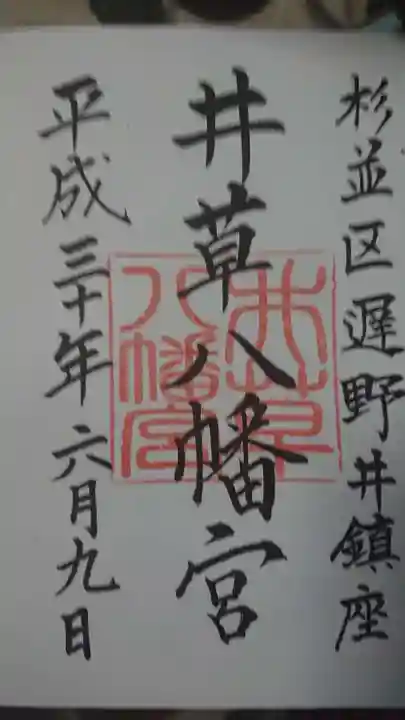 杉並区遅野井鎮座
井草八幡宮
平成三十年六月九日
井草
八幡宮